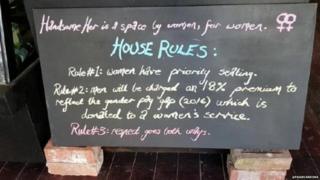 Handsome Her is a space by women, for women. ⚢
HOUSE RULES:
Rule #1: women have priority seating.
Rule #2: men will be charged an 18% premium to
reflect the gender pay gap (2016) which is
donated to a women's service.
Rule #3: respect goes both ways.